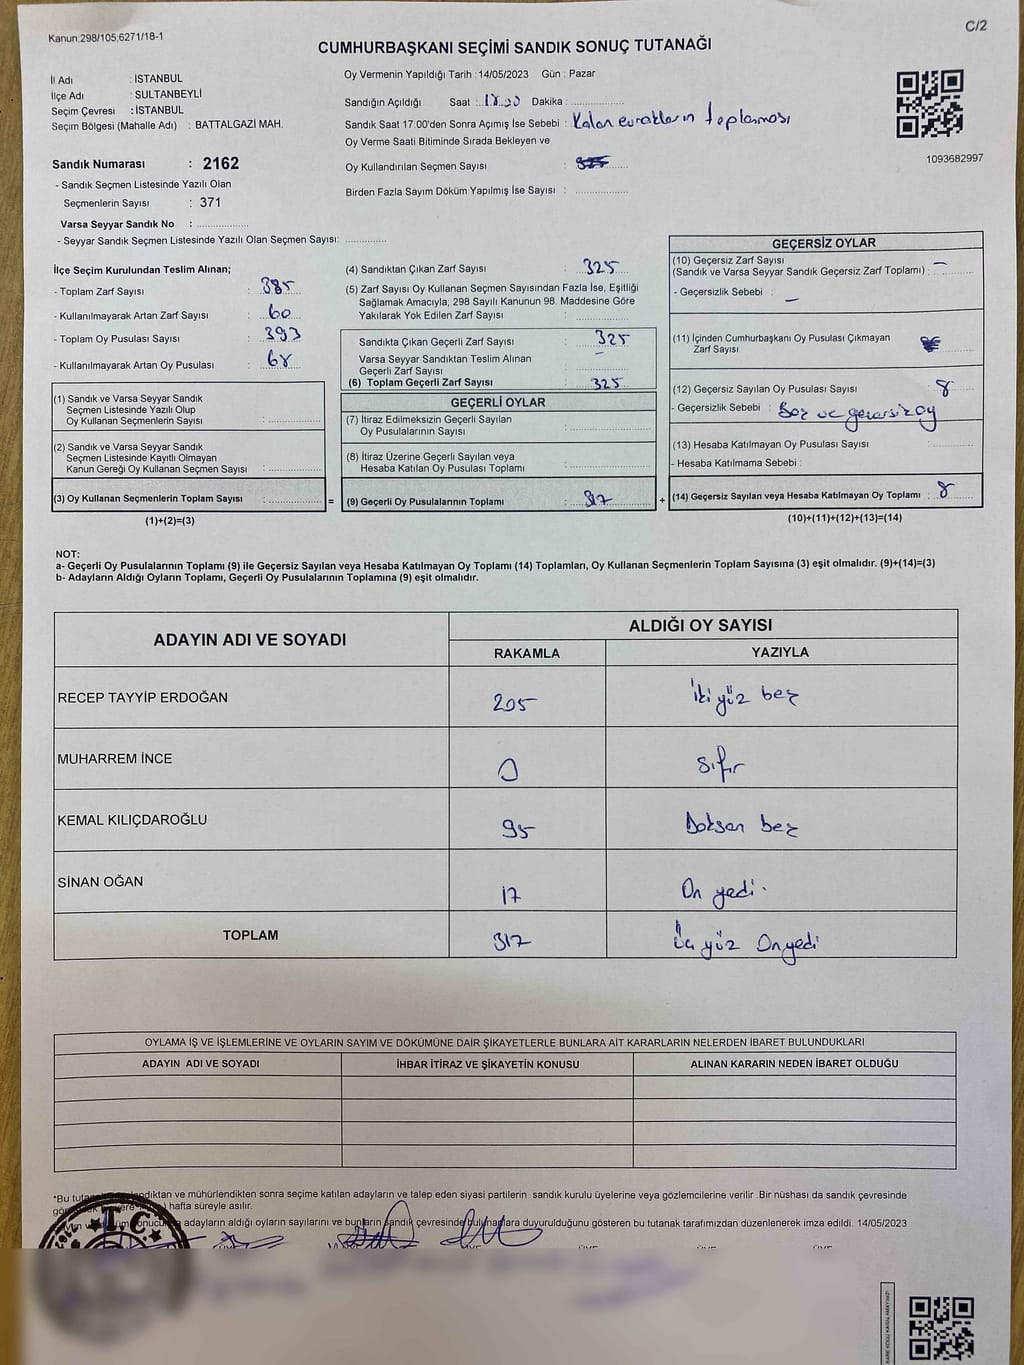 Kanun:298/105,6271/18-1
C/2
CUMHURBAŞKANI SEÇİMİ SANDIK SONUÇ TUTANAĞI
İl Adı : İSTANBUL
İlçe Adı : SULTANBEYLİ
Seçim Çevresi : İSTANBUL
Seçim Bölgesi (Mahalle Adı) : BATTALGAZİ MAH.
Oy Vermenin Yapıldığı Tarih :14/05/2023 Gün : Pazar
Sandığın Açıldığı Saat : Dakika :
Sandık Saat 17:00'den Sonra Açımış İse Sebebi : Kalan evrakların toplanması
Oy Verme Saati Bitiminde Sırada Bekleyen ve
Oy Kullandırılan Seçmen Sayısı :
Birden Fazla Sayım Döküm Yapılmış İse Sayısı :
1093682997
Sandık Numarası : 2162
- Sandık Seçmen Listesinde Yazılı Olan
Seçmenlerin Sayısı : 371
Varsa Seyyar Sandık No :
- Seyyar Sandık Seçmen Listesinde Yazılı Olan Seçmen Sayısı:
İlçe Seçim Kurulundan Teslim Alınan;
- Toplam Zarf Sayısı : 385
- Kullanılmayarak Artan Zarf Sayısı : 60
- Toplam Oy Pusulası Sayısı : 393
- Kullanılmayarak Artan Oy Pusulası : 68
(1) Sandık ve Varsa Seyyar Sandık
Seçmen Listesinde Yazılı Olup
Oy Kullanan Seçmenlerin Sayısı :
(2) Sandık ve Varsa Seyyar Sandık
Seçmen Listesinde Kayıtlı Olmayan
Kanun Gereği Oy Kullanan Seçmen Sayısı :
(3) Oy Kullanan Seçmenlerin Toplam Sayısı :
(1)+(2)=(3)
(4) Sandıktan Çıkan Zarf Sayısı : 325
(5) Zarf Sayısı Oy Kullanan Seçmen Sayısından Fazla İse, Eşitliği
Sağlamak Amacıyla; 298 Sayılı Kanunun 98. Maddesine Göre
Yakılarak Yok Edilen Zarf Sayısı :
Sandıkta Çıkan Geçerli Zarf Sayısı : 325
Varsa Seyyar Sandıktan Teslim Alınan
Geçerli Zarf Sayısı : –
(6) Toplam Geçerli Zarf Sayısı : 325
GEÇERLİ OYLAR
(7) İtiraz Edilmeksizin Geçerli Sayılan
Oy Pusulalarının Sayısı :
(8) İtiraz Üzerine Geçerli Sayılan veya
Hesaba Katılan Oy Pusulası Toplamı :
= (9) Geçerli Oy Pusulalarının Toplamı : 317 +
GEÇERSİZ OYLAR
(10) Geçersiz Zarf Sayısı
(Sandık ve Varsa Seyyar Sandık Geçersiz Zarf Toplamı) : –
- Geçersizlik Sebebi : –
(11) İçinden Cumhurbaşkanı Oy Pusulası Çıkmayan
Zarf Sayısı :
(12) Geçersiz Sayılan Oy Pusulası Sayısı : 8
- Geçersizlik Sebebi : Boş ve geçersiz oy
(13) Hesaba Katılmayan Oy Pusulası Sayısı :
- Hesaba Katılmama Sebebi :
(14) Geçersiz Sayılan veya Hesaba Katılmayan Oy Toplamı : 8
(10)+(11)+(12)+(13)=(14)
NOT:
a- Geçerli Oy Pusulalarının Toplamı (9) ile Geçersiz Sayılan veya Hesaba Katılmayan Oy Toplamı (14) Toplamları, Oy Kullanan Seçmenlerin Toplam Sayısına (3) eşit olmalıdır. (9)+(14)=(3)
b- Adayların Aldığı Oyların Toplamı, Geçerli Oy Pusulalarının Toplamına (9) eşit olmalıdır.
ADAYIN ADI VE SOYADI
ALDIĞI OY SAYISI
RAKAMLA YAZIYLA
RECEP TAYYİP ERDOĞAN 205 İki yüz beş
MUHARREM İNCE 0 Sıfır
KEMAL KILIÇDAROĞLU 95 Doksan beş
SİNAN OĞAN 17 On yedi.
TOPLAM 317 Üç yüz Onyedi
OYLAMA İŞ VE İŞLEMLERİNE VE OYLARIN SAYIM VE DÖKÜMÜNE DAİR ŞİKAYETLERLE BUNLARA AİT KARARLARIN NELERDEN İBARET BULUNDUKLARI
ADAYIN ADI VE SOYADI İHBAR İTİRAZ VE ŞİKAYETİN KONUSU ALINAN KARARIN NEDEN İBARET OLDUĞU
*Bu ve mühürlendikten sonra seçime katılan adayların ve talep eden siyasi partilerin sandık kurulu üyelerine veya gözlemcilerine verilir .Bir nüshası da sandık çevresinde
hafta süreyle asılır.
adayların aldığı oyların sayılarını ve bunların sandık çevresinde duyurulduğunu gösteren bu tutanak tarafımızdan düzenlenerek imza edildi. 14/05/2023
T.C.